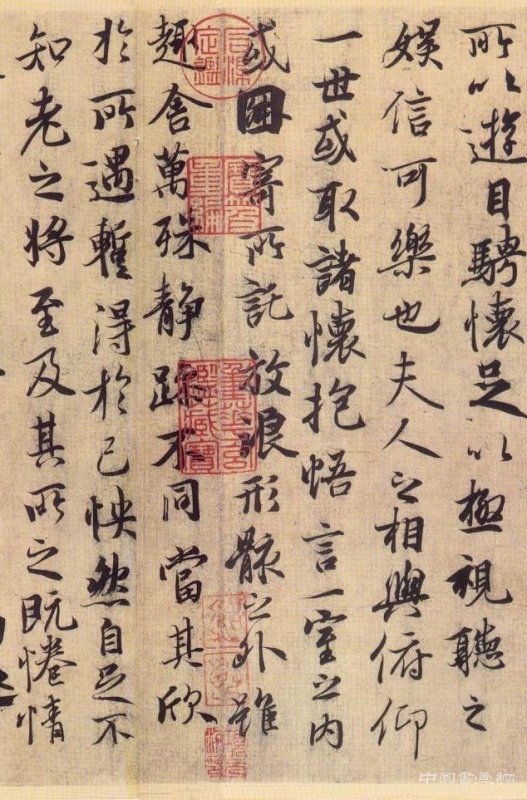 所以遊目騁懷足以極視聽之
娛信可樂也夫人之相與俯仰
一世或取諸懷抱悟言一室之內
或因寄所託放浪形骸之外雖
趣舍萬殊靜躁不同當其欣
於所遇暫得於己怏然自足不
知老之將至及其所之既惓情